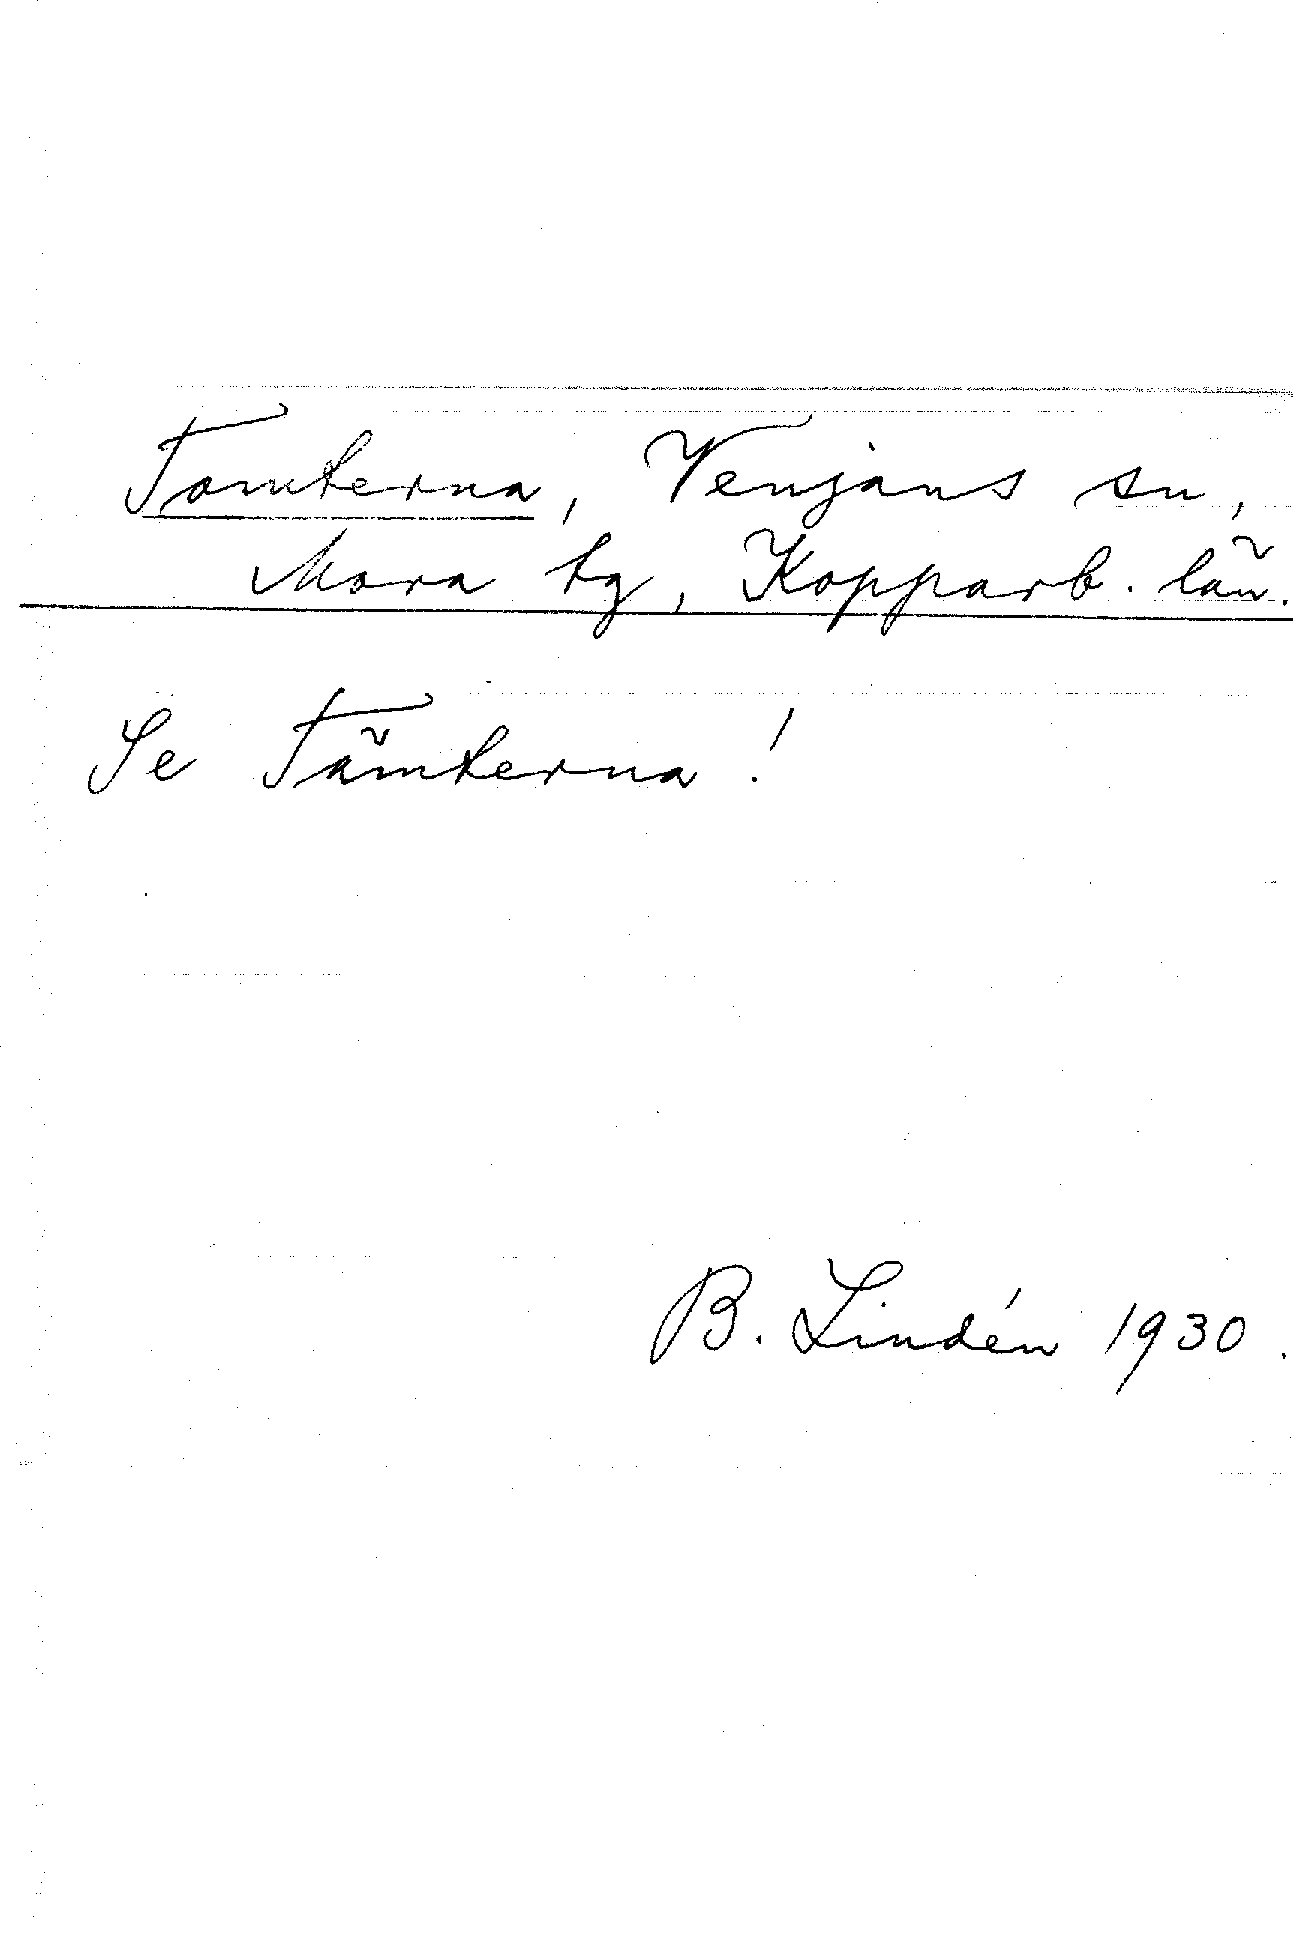 Tomterna, Venjans sn,
Mora tg, Kopparb. län.
Se Tämterna!
B. Lindén 1930.